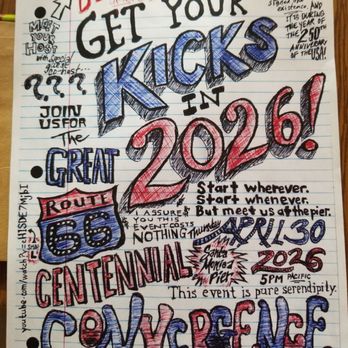 GET YOUR
KICKS
IN
2026!
MEET
YOUR
HOST
with special
guest
co-host...
? ? ?
existence, and
IT IS DURING
THE YEAR OF
THE 250th
ANNIVERSARY
OF THE USA!
JOIN
US FOR
The
GREAT
ROUTE
66
CENTENNIAL
CONVERGENCE
Start wherever.
Start whenever.
But meet us at the pier.
I ASSURE
YOU THIS
EVENT COSTS
NOTHING
Thursday
APRIL 30
2026
5PM PACIFIC
Santa
Monica
Pier
This event is pure serendipity.